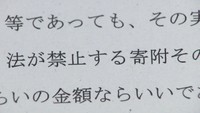 等であっても、その実
法が禁止する寄附その
らいの金額ならいいであ